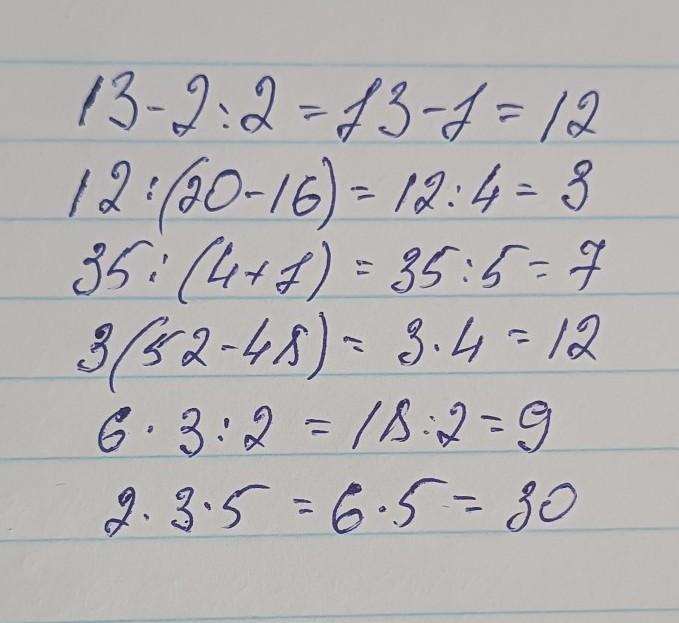 13-2:2=13-1=12
12:(20-16)=12:4=3
35:(4+1)=35:5=7
3(52-48)=3·4=12
6·3:2=18:2=9
2·3·5=6·5=30